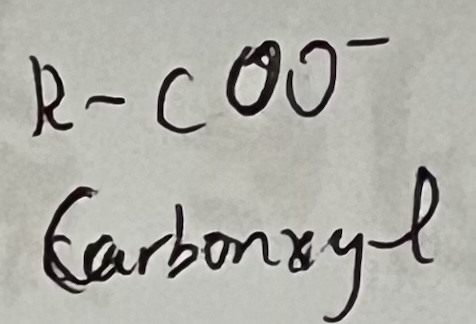 R-COO⁻
Carbonxyl